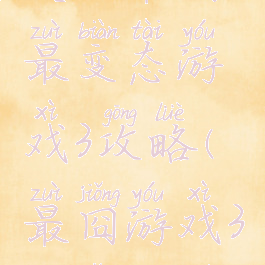 zuì biàn tài yóu
最变态游
xì gōng lüè
戏3攻略(
zuì jiǒng yóu xì
最囧游戏3